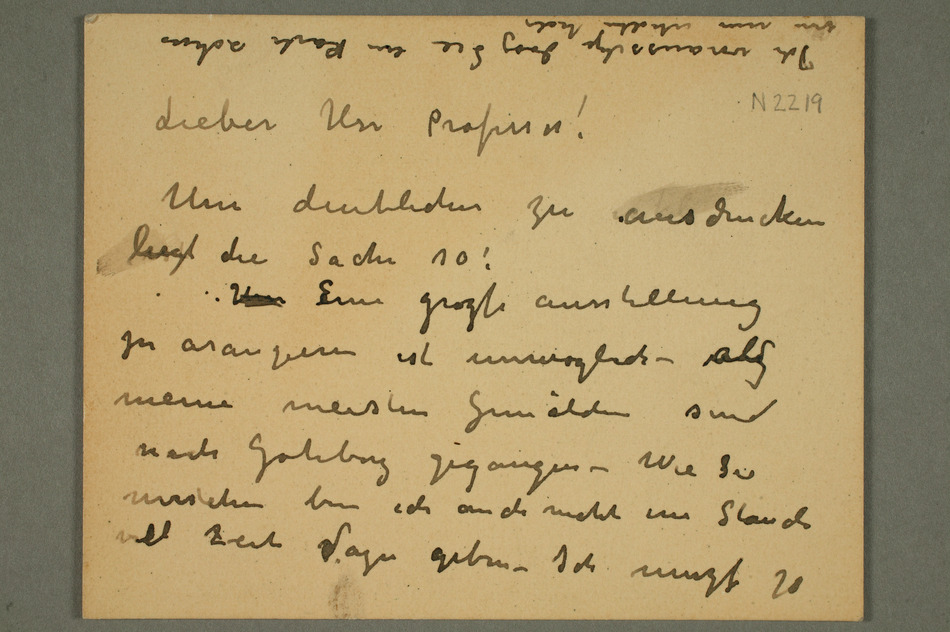 Ich voraussetze dasz Sie ein Karte schon
von mir erhalten habe
N 2219
Lieber Herr Professor!
Um deutlicher zu ausdrucken
liegt die Sache so:
Eine grozse ausstellung
zu arangieren ist unmöglich – als
meine meisten Gemälden sind
nach Göteborg gegangen – Wie Sie
verstehen bin ich auch nicht im Stande
viel Zeit geben – Ich muszt ja